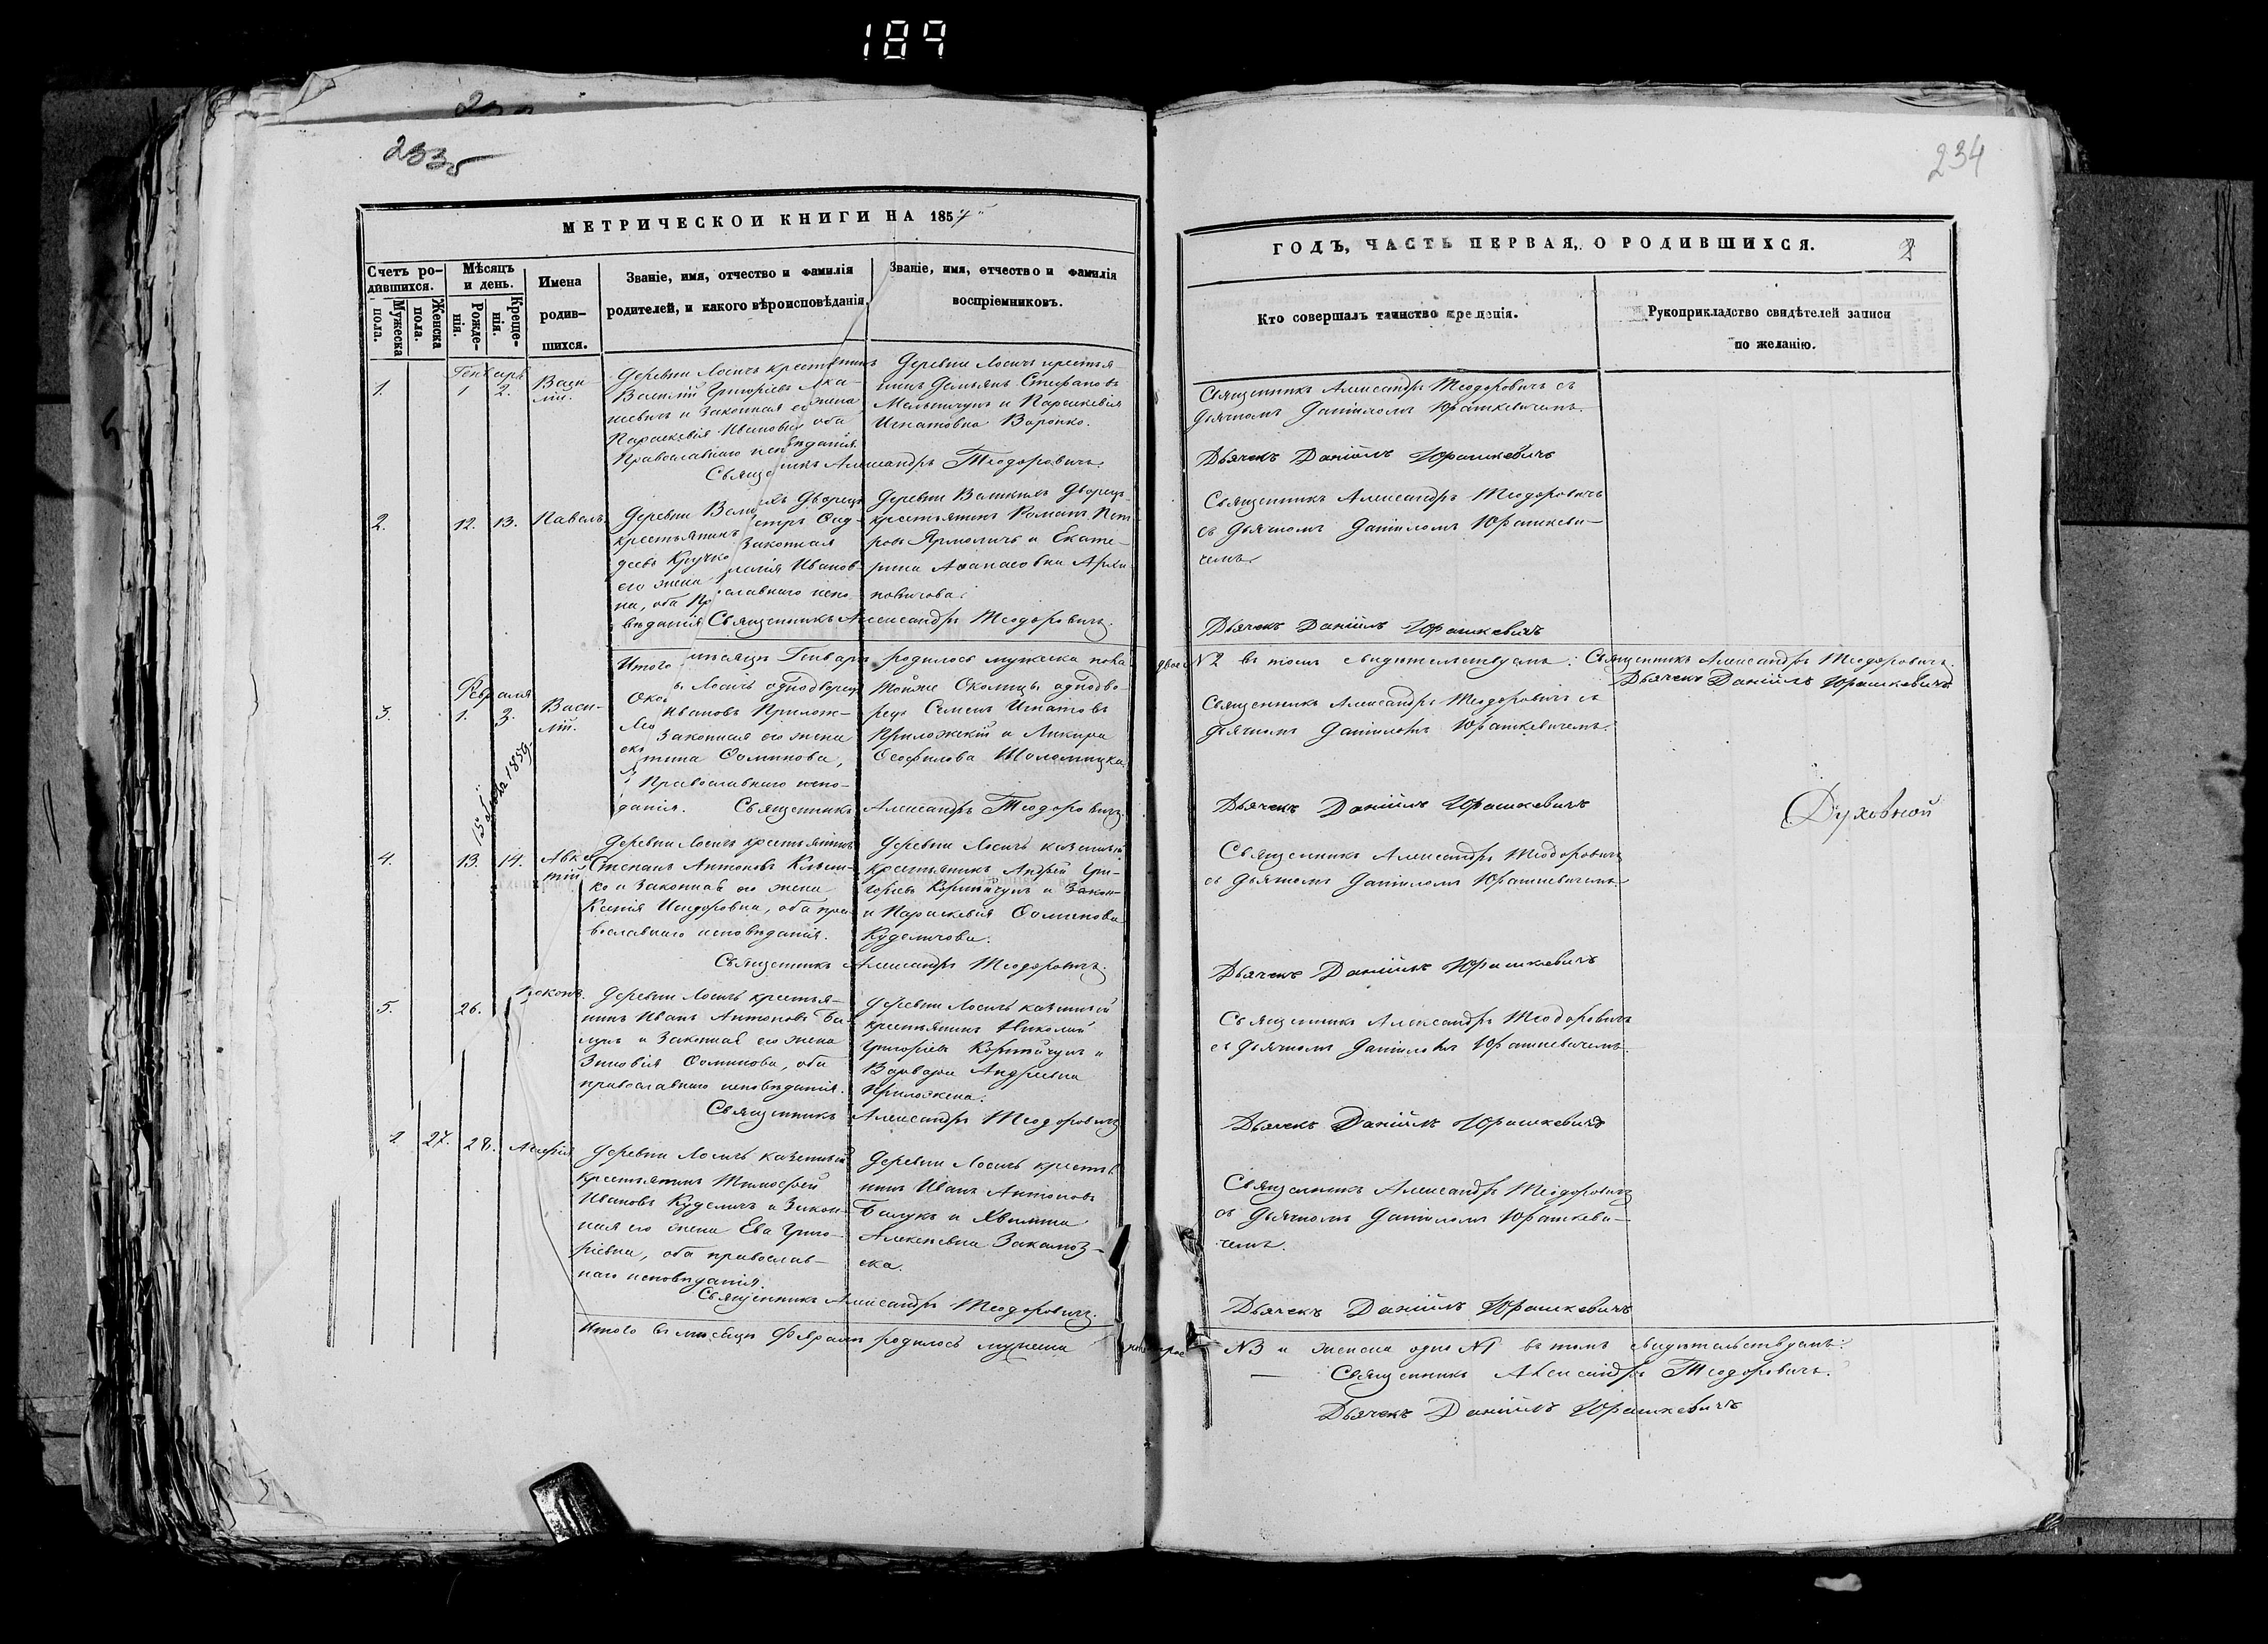 189
233
234
МЕТРИЧЕСКОЙ КНИГИ НА 1857
Счетъ ро-
дившихся.
Мужеска
пола.
Женска
пола.
Мѣсяцъ
и день.
Рожде-
нія.
Креще-
нія.
Имена
родив-
шихся.
Званіе, имя, отчество и фамилія
родителей, и какого вѣроисповѣданія.
Званіе, имя, отчество и фамилія
воспріемниковъ.
Генварь
1. 1 2. Васи-
лій.
Деревни Лосичъ крестьянинъ
Василій Григорьевъ
и Законная его жена
Параскевія Иванова оба
Православнаго исповѣданія.
Деревни Лосичъ крестья-
нинъ Демьянъ Стефановъ
Мельничукъ и Параскевія
Игнатовна Воронко.
Священникъ Александръ Теодоровичъ.
2. 12. 13. Павелъ.
Деревни Вели хъ Дворецъ
крестьянинъ етръ Онд-
Кручко Законная
его жена Иванов-
на, оба Пр ославнаго испо-
вѣданія
Деревни Великихъ Дворецъ
крестьянинъ Романъ Пет-
ровъ Ярмоличъ и Екате-
рина Афанасовна
Священникъ Александръ Теодоровичъ.
Итого мѣсяцѣ Генварѣ родилось мужеска пола
Февраля
3. 1. 3. Васи-
лій.
15 1859.
Око ы Лосичъ однодворецъ
Ивановъ Прилож-
Законная его жена
Фоминова,
Православнаго испо-
данія.
Тойже Околицы однодво-
рецъ Семенъ Игнатовъ
Приложскій и
Феофилова
Священникъ Александръ Теодоровичъ
4. 13. 14.
Деревни Лосичъ крестьянинъ
Степанъ Антоновъ
и Законная его жена
Ксенія Исидоровна, оба пра-
вославнаго исповѣданія.
Деревни Лосичъ казенный
крестьянинъ Андрей Гри-
горьевъ
и Параскевія Фоминова
Куделичова.
Священникъ Александръ Теодоровичъ.
5. 26.
Деревни Лосичъ крестья-
нинъ Иванъ Антоновъ Ба-
лукъ и Законная его жена
Зиновія Фоминова, оба
православнаго исповѣданія.
Деревни Лосичъ казенный
крестьянинъ Николай
Григорьевъ и
Варвара Андреевна
Приложска.
Священникъ Александръ Теодоровичъ
27. 28.
Деревни Лосичъ казенный
крестьянинъ Тимофей
Ивановъ Куделичъ и Закон-
ная его жена Ева Григо-
ріевна, оба православ-
наго исповѣданія.
Деревни Лосичъ крестья-
нинъ Иванъ Антоновъ
Балукъ и
Алексѣевна
Священникъ Александръ Теодоровичъ.
Итого въ мѣсяцѣ Февралѣ родилось мужеска
ГОДЪ, ЧАСТЬ ПЕРВАЯ, О РОДИВШИХСЯ.
Кто совершалъ таинство крещенія.
Рукоприкладство свидѣтелей записи
по желанію.
Священникъ Александръ Теодоровичъ съ
дьячкомъ Даніиломъ Юрашкевичемъ.
Дьячекъ Даніилъ Юрашкевичъ
Священникъ Александръ Теодоровичъ
съ дьячкомъ Даніиломъ Юрашкеви-
чемъ.
Дьячекъ Даніилъ Юрашкевичъ
двое №2 въ томъ свидѣтельствуемъ: Священникъ Александръ Теодоровичъ.
Дьячекъ Даніилъ Юрашкевичъ
Священникъ Александръ Теодоровичъ съ
дьячкомъ Даніиломъ Юрашкевичемъ.
Дьячекъ Даніилъ Юрашкевичъ
Духовной
Священникъ Александръ Теодоровичъ
съ дьячкомъ Даніиломъ Юрашкевичемъ.
Дьячекъ Даніилъ Юрашкевичъ
Священникъ Александръ Теодоровичъ
съ дьячкомъ Даніиломъ Юрашкевичемъ.
Дьячекъ Даніилъ Юрашкевичъ
Священникъ Александръ Теодоровичъ
съ дьячкомъ Даніиломъ Юрашкеви-
чемъ.
Дьячекъ Даніилъ Юрашкевичъ
№3 и женска одна №1 въ томъ свидѣтельствуемъ:
Священникъ Александръ Теодоровичъ.
Дьячекъ Даніилъ Юрашкевичъ